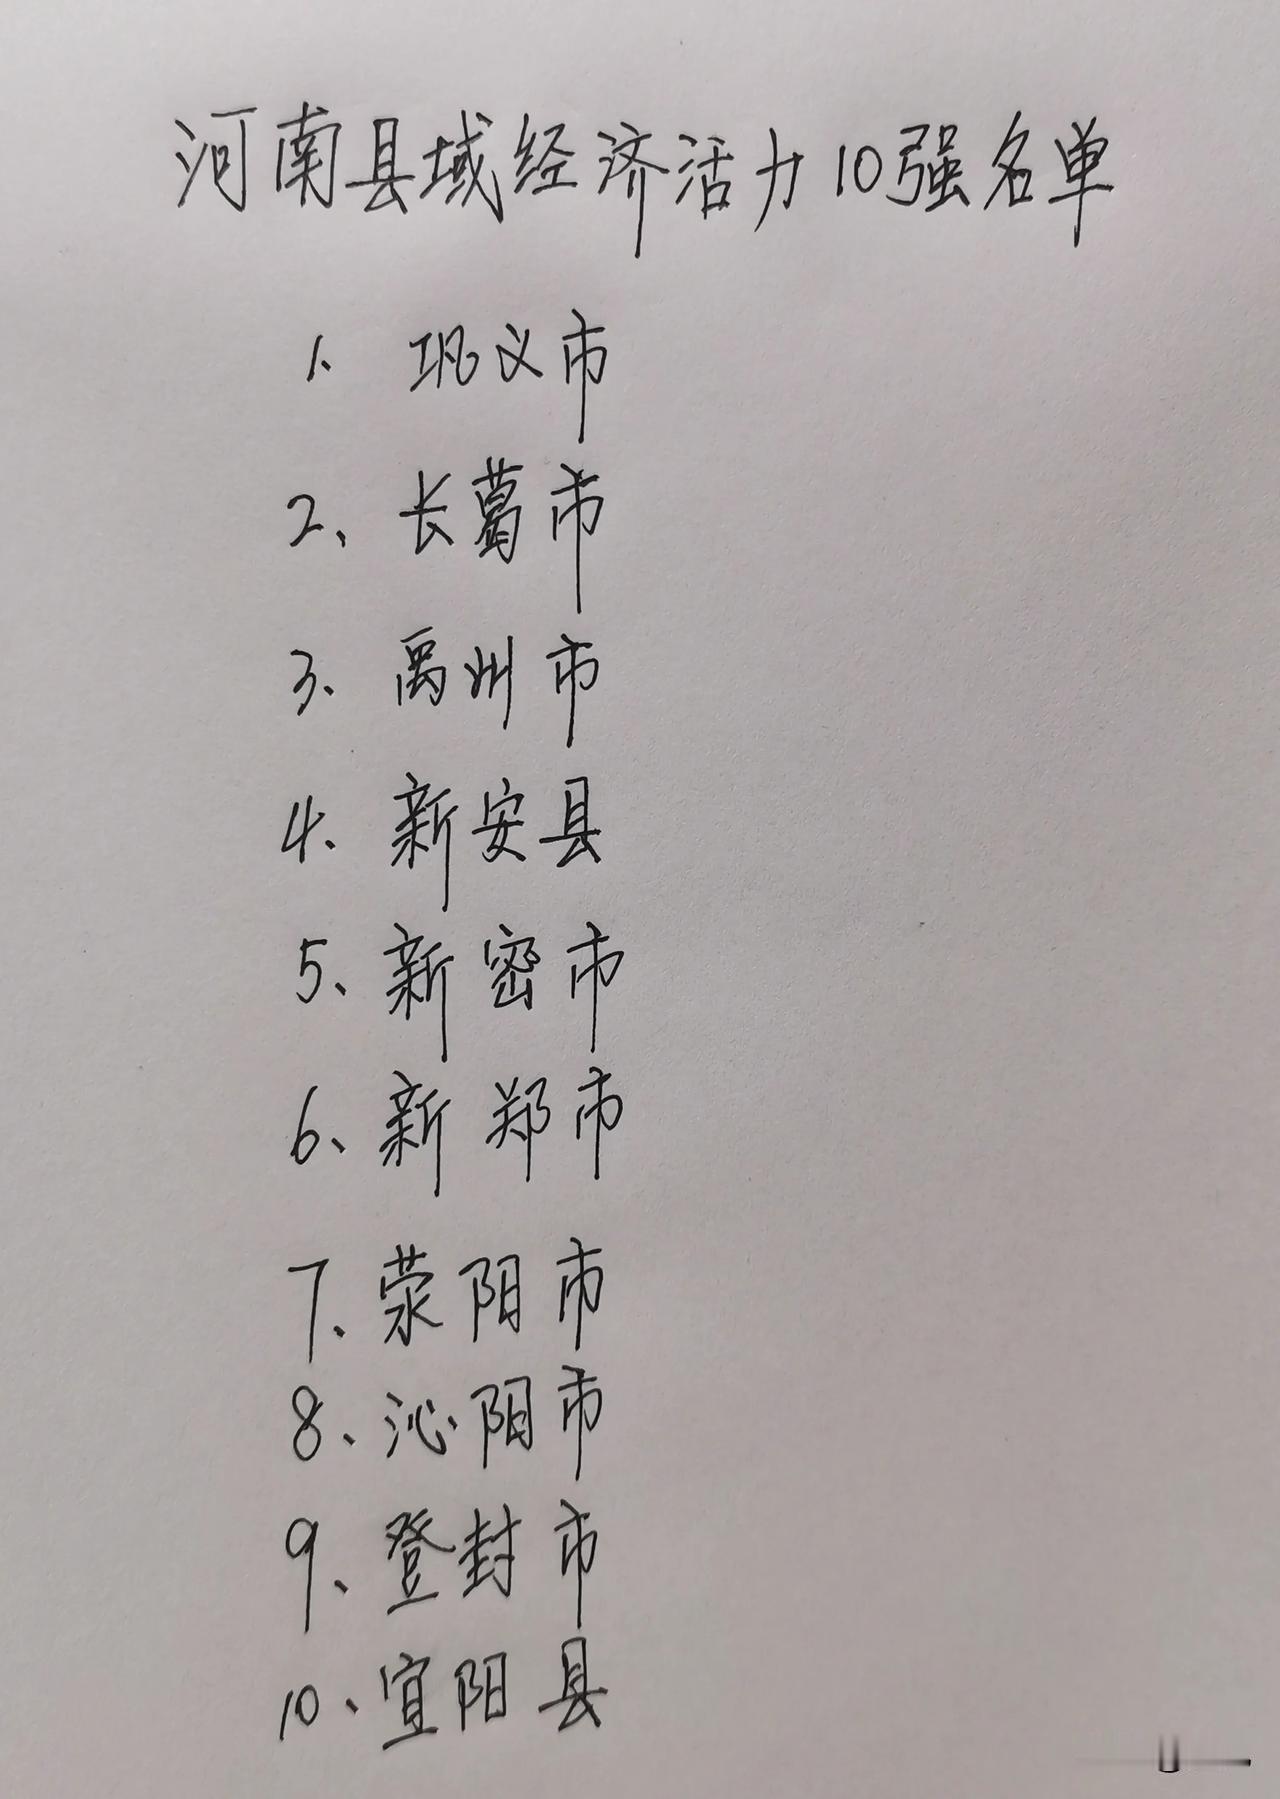 河南县域经济活力10强名单
1、巩义市
2、长葛市
3、禹州市
4、新安县
5、新密市
6、新郑市
7、荥阳市
8、沁阳市
9、登封市
10、宜阳县